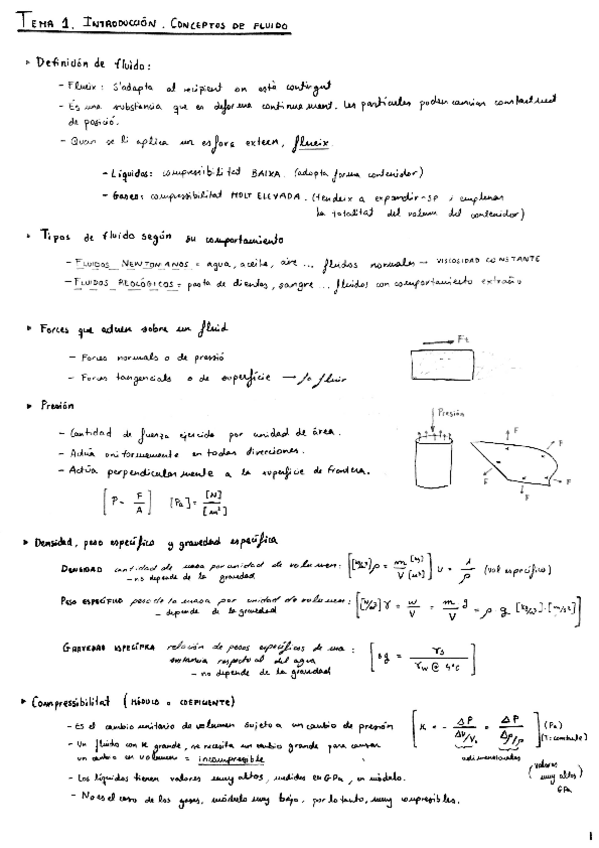 TEMA 1. INTRODUCCIÓN. CONCEPTOS DE FLUIDO
▸ Definición de fluido:
- Flueix: s'adapta al recipient on està contingut
- És una substancia que es deforma continuament. Les partícules poden canviar constantment
de posició.
- Quan se li aplica un esforç extern, flueix.
- Líquidos: compressibilitat BAIXA. (adopta forma contenidor)
- Gases: compressibilitat MOLT ELEVADA. (tendeix a expandir-se i emplenar
la totalitat del volum del contenidor)
▸ Tipos de fluido según su comportamiento
- FLUIDOS NEWTONIANOS = agua, aceite, aire ... fluidos normales → VISCOSIDAD CONSTANTE
- FLUIDOS REOLÓGICOS = pasta de dientes, sangre ... fluidos con comportamiento extraño
▸ Forces que actuen sobre un fluid
- Forces normals o de pressió
- Forces tangencials o de superfície → fa fluir
Ft
▸ Presión
- Cantidad de fuerza ejercida por unidad de área.
- Actúa uniformemente en todas direcciones.
- Actúa perpendicularmente a la superficie de frontera.
[P = F/A] [Pa] = [N]/[m²]
Presión
F F F F F
▸ Densidad, peso específico y gravedad específica
DENSIDAD cantidad de masa por unidad de volumen: [[kg/m³] ρ = m/V [kg]/[m³]] v = 1/ρ (vol específico)
- no depende de la gravedad
PESO ESPECÍFICO peso de la masa por unidad de volumen: [[N/m³] γ = w/V = m/V g = ρ g [kg/m³]·[m/s²]]
- depende de la gravedad
GRAVEDAD ESPECÍFICA relación de pesos específicos de una: [sg = γs / γw @ 4°C]
sustancia respecto al del agua
- no depende de la gravedad
▸ Compressibilitat (MÓDULO o COEFICIENTE)
- Es el cambio unitario de volumen sujeto a un cambio de presión [K = - ΔP / ΔV/V₀ = ΔP / Δρ/ρ] (Pa)
- Un fluido con K grande, se necesita un cambio grande para causar
un cambio en volumen = incompressible
adimensionales
- Los líquidos tienen valores muy altos, medidos en GPa, en módulo.
(valores
muy altos)
GPa
- No es el caso de los gases, módulo muy bajo, por lo tanto, muy compresibles.
1